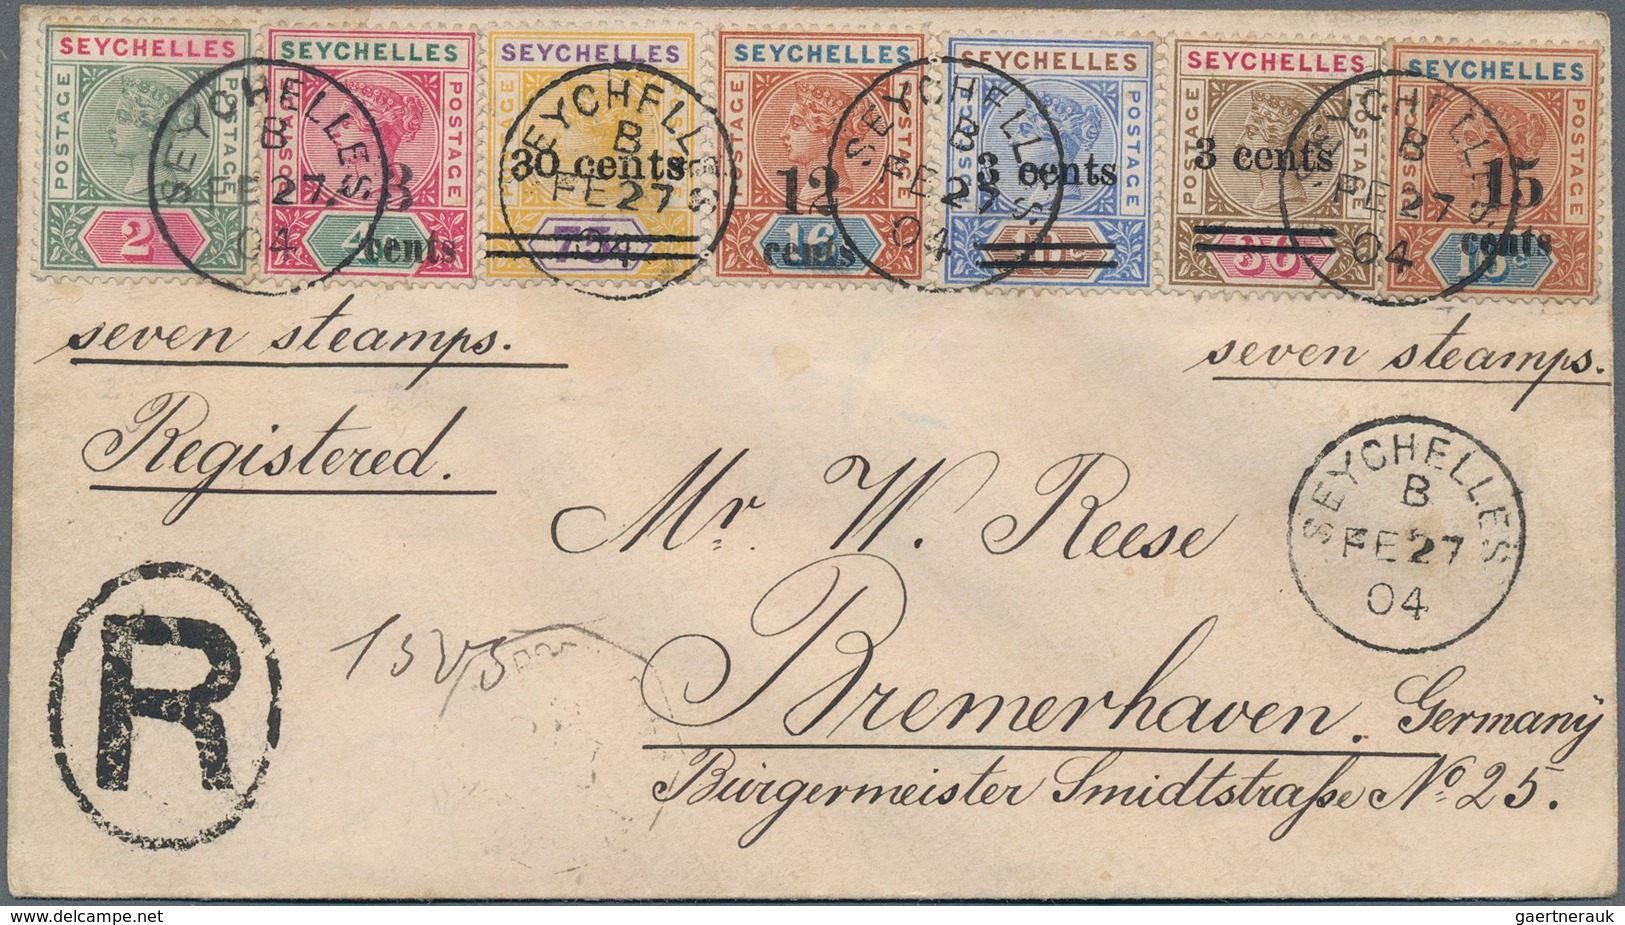 SEYCHELLES SEYCHELLES SEYCHELLES SEYCHELLES SEYCHELLES SEYCHELLES SEYCHELLES
POSTAGE POSTAGE POSTAGE POSTAGE POSTAGE POSTAGE POSTAGE POSTAGE
SEYCHELLES B FE 27 04
SEYCHELLES B FE 27 04
SEYCHELLES B FE 04
SEYCHELLES B FE 27 04
2
3 cents
30 cents
12 cents 16
3 cents
3 cents 36
15 cents
seven steamps. seven steamps.
Registered.
SEYCHELLES
B
FE 27
04
Mr. W. Reese
R
Bremerhaven. Germany
Bürgermeister Smidtstraße No 25.
www.delcampe.net
gaertnerauk